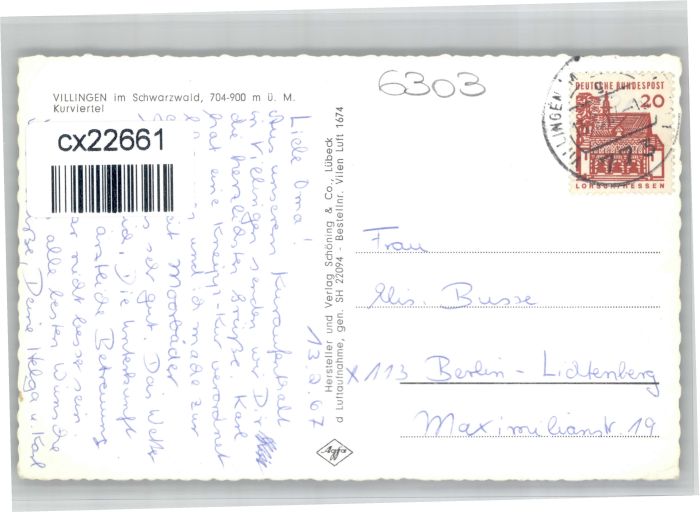 VILLINGEN im Schwarzwald, 704-900 m ü. M.
Kurviertel
cx22661
6303
DEUTSCHE BUNDESPOST
20
LORSCH/HESSEN
VILLINGEN
773
13.2.67
Liebe Oma!
Aus unserem Kuraufenthalt
in Villingen senden wir Dir
die herzlichsten Grüße. Karl
hat eine Kneipp-Kur verordnet
und ich mache zur
Zeit Moorbäder
sehr gut. Das Wetter
Die Unterkunft
ärztliche Betreuung
nicht besser sein
alle besten Wünsche
Deine Helga u. Karl
Hersteller und Verlag Schöning & Co., Lübeck
d Luftaufnahme, gen. SH 22094 - Bestellnr. Vilen Luft 1674
Agfa
Frau
Elis. Busse
X 113 Berlin - Lichtenberg
Maximilianstr. 19